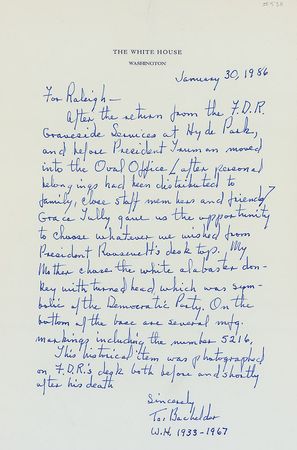 THE WHITE HOUSE
WASHINGTON
January 30, 1986
For Raleigh—
After the return from the F.D.R.
Graveside Services at Hyde Park,
and before President Truman moved
into the Oval Office (after personal
belongings had been distributed to
family, close staff members and friends)
Grace Tully gave us the opportunity
to choose whatever we wished from
President Roosevelt's desk top. My
Mother chose the white alabaster don-
key with turned head which was sym-
bolic of the Democratic Party. On the
bottom of the base are several mfg.
markings including the number 5216.
This historical item was photographed
on F.D.R.'s desk both before and shortly
after his death
Sincerely
Toi Bachelder
W.H. 1933-1967